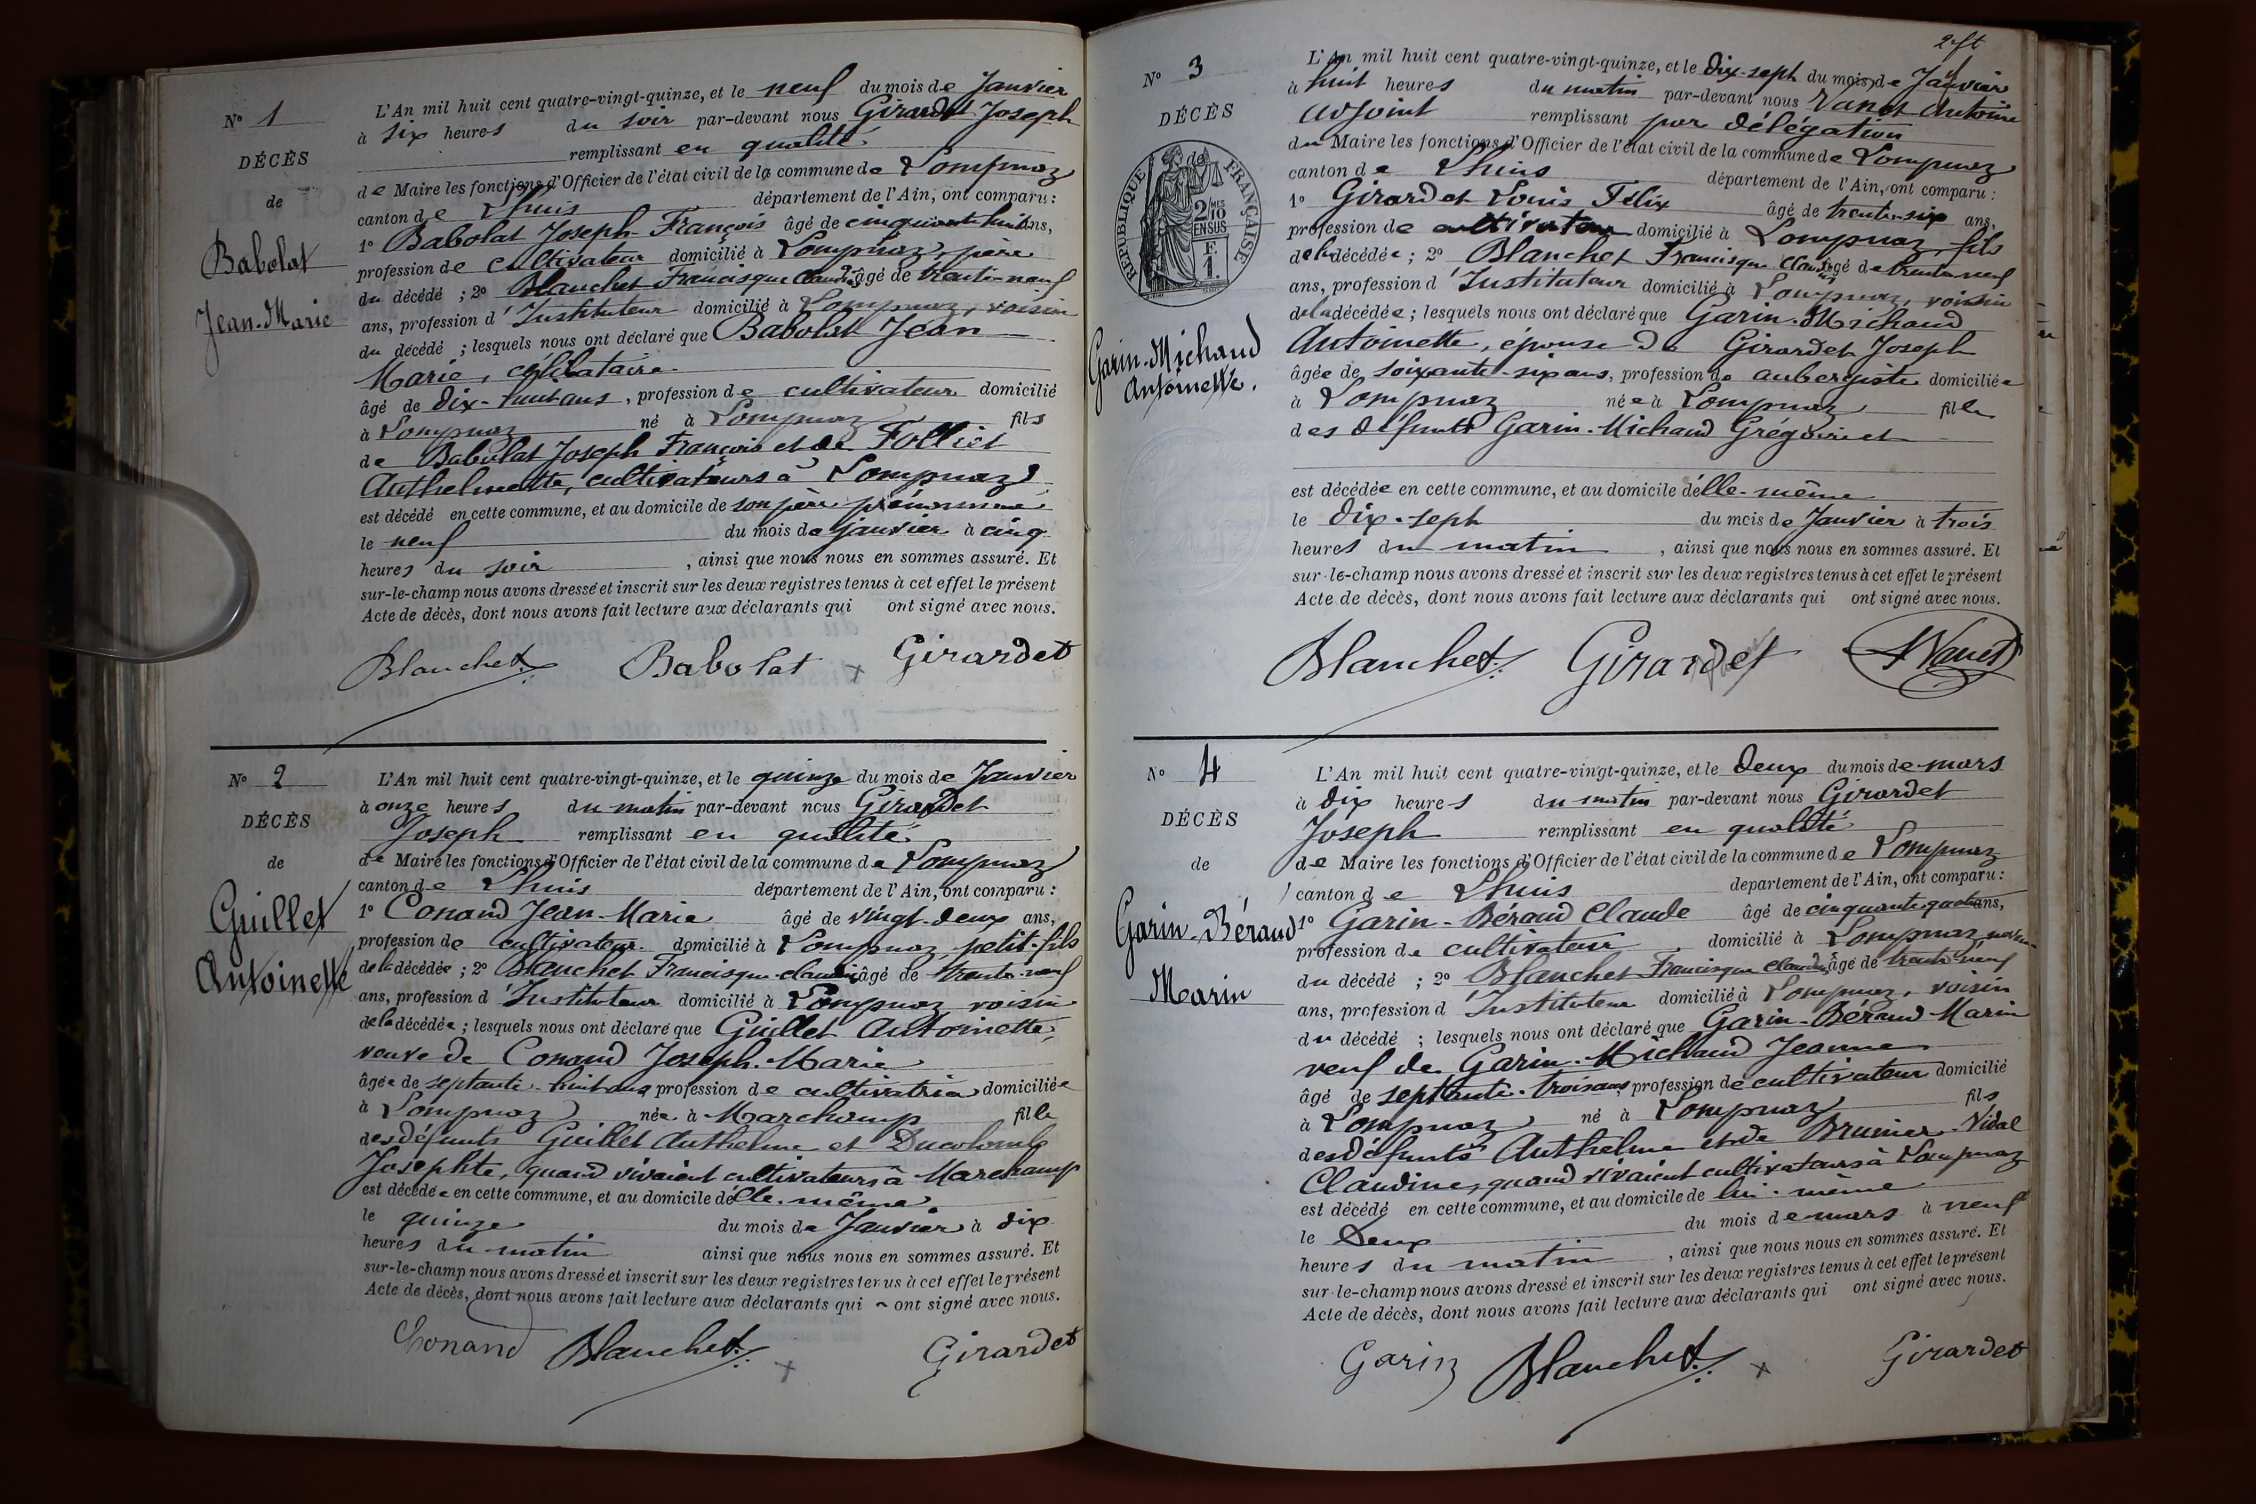 N° 1
DÉCÈS
de
Babolat
Jean-Marie
L'An mil huit cent quatre-vingt-quinze, et le neuf du mois de Janvier
à six heures du soir par-devant nous Girardet Joseph
remplissant en qualité
de Maire les fonctions d'Officier de l'état civil de la commune de Lompnaz
canton de Lhuis département de l'Ain, ont comparu :
1° Babolat Joseph-François âgé de cinquante huit ans,
profession de cultivateur domicilié à Lompnaz, père
du décédé ; 2° Blanchet Francisque Claudin âgé de trente-neuf
ans, profession d'Instituteur domicilié à Lompnaz, voisin
du décédé ; lesquels nous ont déclaré que Babolat Jean
Marie, célibataire
âgé de dix-huit ans, profession de cultivateur domicilié
à Lompnaz né à Lompnaz fils
de Babolat Joseph François et de Folliet
Anthelmette, cultivateurs à Lompnaz
est décédé en cette commune, et au domicile de son père prénommé
le neuf du mois de janvier à cinq
heures du soir, ainsi que nous nous en sommes assuré. Et
sur-le-champ nous avons dressé et inscrit sur les deux registres tenus à cet effet le présent
Acte de décès, dont nous avons fait lecture aux déclarants qui ont signé avec nous.
Blanchet Babolat Girardet
N° 2
DÉCÈS
de
Guillet
Antoinette
L'An mil huit cent quatre-vingt-quinze, et le quinze du mois de Janvier
à onze heures du matin par-devant nous Girardet
Joseph remplissant en qualité
de Maire les fonctions d'Officier de l'état civil de la commune de Lompnaz
canton de Lhuis département de l'Ain, ont comparu :
1° Conand Jean-Marie âgé de vingt-deux ans,
profession de cultivateur domicilié à Lompnaz, petit-fils
de la décédée ; 2° Blanchet Francisque Claudin âgé de trente-neuf
ans, profession d'Instituteur domicilié à Lompnaz voisin
de la décédée ; lesquels nous ont déclaré que Guillet Antoinette,
veuve de Conand Joseph-Marie
âgée de septante-huit ans profession de cultivatrice domiciliée
à Lompnaz née à Marchamp fille
des défunts Guillet Anthelme et Ducolomb
Josephte, quand vivaient cultivateurs à Marchamp
est décédée en cette commune, et au domicile d'elle-même
le quinze du mois de Janvier à dix
heures du matin ainsi que nous nous en sommes assuré. Et
sur-le-champ nous avons dressé et inscrit sur les deux registres tenus à cet effet le présent
Acte de décès, dont nous avons fait lecture aux déclarants qui ont signé avec nous.
Conand Blanchet Girardet
N° 3
DÉCÈS
de
RÉPUBLIQUE FRANÇAISE
2/10 MES
EN SUS
F.
1.
Garin-Michaud
Antoinette.
L'An mil huit cent quatre-vingt-quinze, et le dix-sept du mois de Janvier
à huit heures du matin par-devant nous Vanet Antoine
adjoint remplissant par délégation
du Maire les fonctions d'Officier de l'état civil de la commune de Lompnaz
canton de Lhuis département de l'Ain, ont comparu :
1° Girardet Louis Félix âgé de trente-six ans,
profession de cultivateur domicilié à Lompnaz, fils
de la décédée ; 2° Blanchet Francisque Claudin âgé de trente-neuf
ans, profession d'Instituteur domicilié à Lompnaz, voisin
de la décédée ; lesquels nous ont déclaré que Garin-Michaud
Antoinette, épouse de Girardet Joseph
âgée de soixante-six ans, profession de aubergiste domiciliée
à Lompnaz née à Lompnaz fille
des défunts Garin-Michaud Grégoire et
est décédée en cette commune, et au domicile d'elle-même
le dix-sept du mois de Janvier à trois
heures du matin, ainsi que nous nous en sommes assuré. Et
sur-le-champ nous avons dressé et inscrit sur les deux registres tenus à cet effet le présent
Acte de décès, dont nous avons fait lecture aux déclarants qui ont signé avec nous.
Blanchet Girardet A Vanet
N° 4
DÉCÈS
de
Garin-Béraud
Marin
L'An mil huit cent quatre-vingt-quinze, et le deux du mois de mars
à dix heures du matin par-devant nous Girardet
Joseph remplissant en qualité
de Maire les fonctions d'Officier de l'état civil de la commune de Lompnaz
canton de Lhuis département de l'Ain, ont comparu :
1° Garin-Béraud Claude âgé de cinquante-quatre ans,
profession de cultivateur domicilié à Lompnaz
du décédé ; 2° Blanchet Francisque Claudin âgé de trente neuf
ans, profession d'Instituteur domicilié à Lompnaz, voisin
du décédé ; lesquels nous ont déclaré que Garin-Béraud Marin
veuf de Garin-Michaud Jeanne
âgé de septante-trois ans, profession de cultivateur domicilié
à Lompnaz né à Lompnaz fils
des défunts Anthelme et de Brunier-Vidal
Claudine, quand vivaient cultivateurs à Lompnaz
est décédé en cette commune, et au domicile de lui-même
le deux du mois de mars à neuf
heures du matin, ainsi que nous nous en sommes assuré. Et
sur-le-champ nous avons dressé et inscrit sur les deux registres tenus à cet effet le présent
Acte de décès, dont nous avons fait lecture aux déclarants qui ont signé avec nous.
Garin Blanchet Girardet